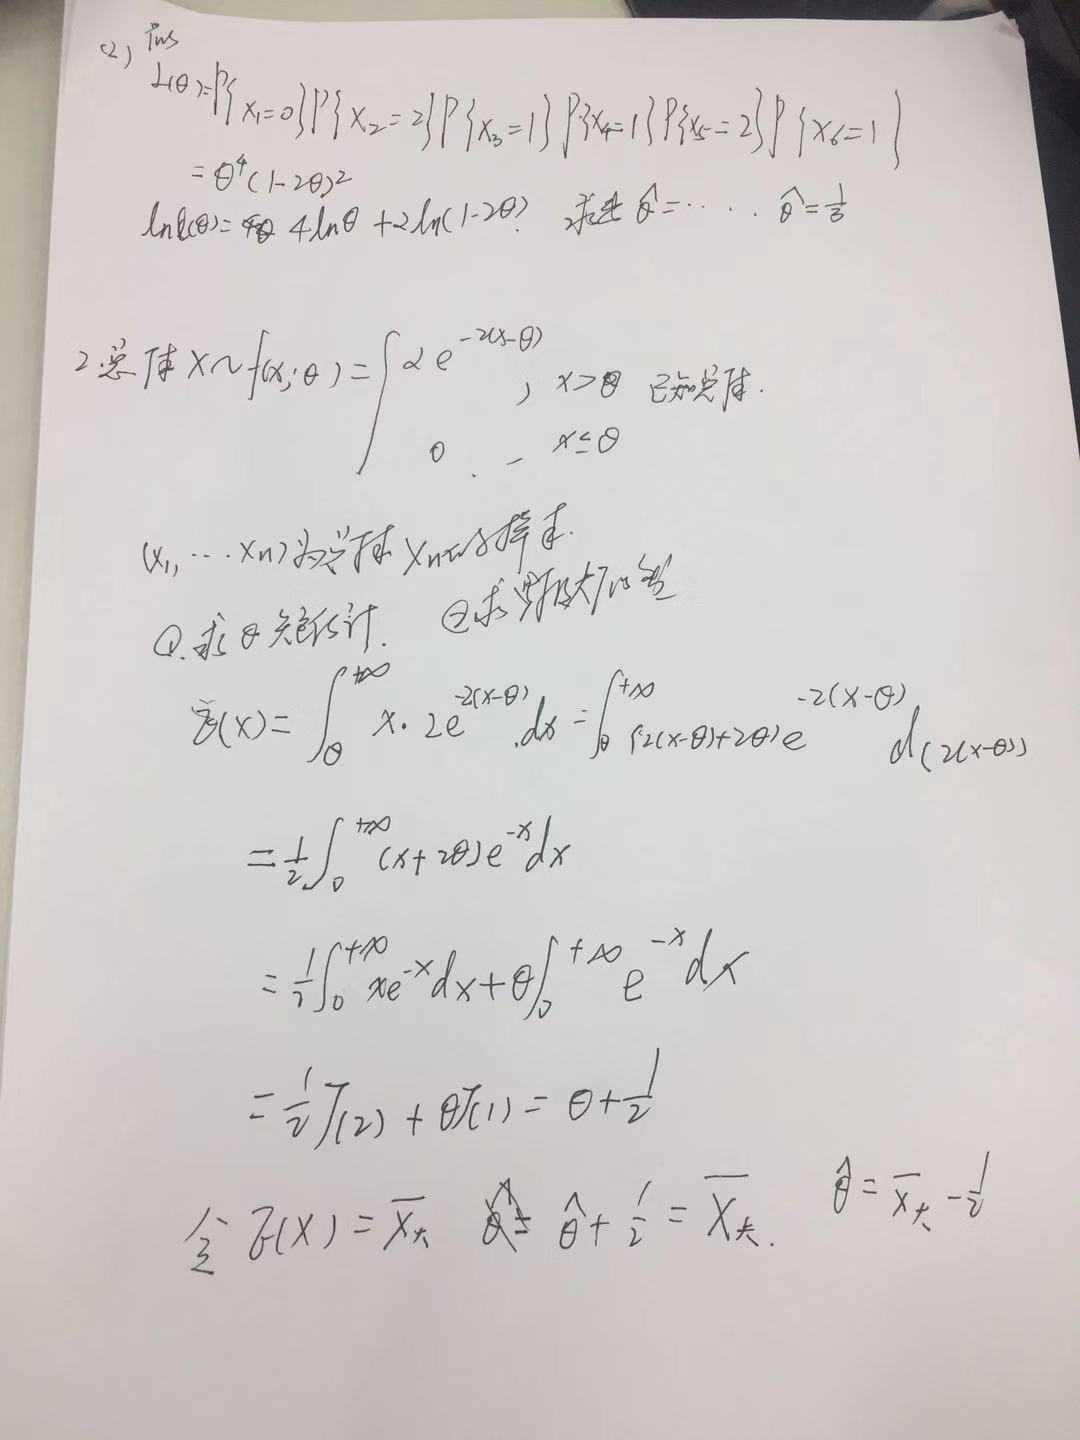 (2) Ins
L(θ)=P{X₁=0}P{X₂=2}P{X₃=1}P{X₄=1}P{X₅=2}P{X₆=1}
=θ⁴(1-2θ)²
lnL(θ)= 4lnθ+2ln(1-2θ). 求出 θ̂=…… θ̂=1/3
2 总体 X~f(x;θ)={ 2e^{-2(x-θ)}, x>θ 已知总体.
0, x≤θ
(X₁,…Xn)为总体X 的样本.
①.求θ矩估计. ②求 极大
E(X)=∫_θ^{+∞} x·2e^{-2(x-θ)}dx=∫_θ^{+∞}{2(x-θ)+2θ)e^{-2(x-θ)}d(2(x-θ))
=1/2∫_0^{+∞}(x+2θ)e^{-x}dx
=1/2∫_0^{+∞}xe^{-x}dx+θ∫_0^{+∞}e^{-x}dx
=1/2Γ(2)+θΓ(1)=θ+1/2
令 E(X)=X̄ θ̂+1/2=X̄. θ̂=X̄-1/2